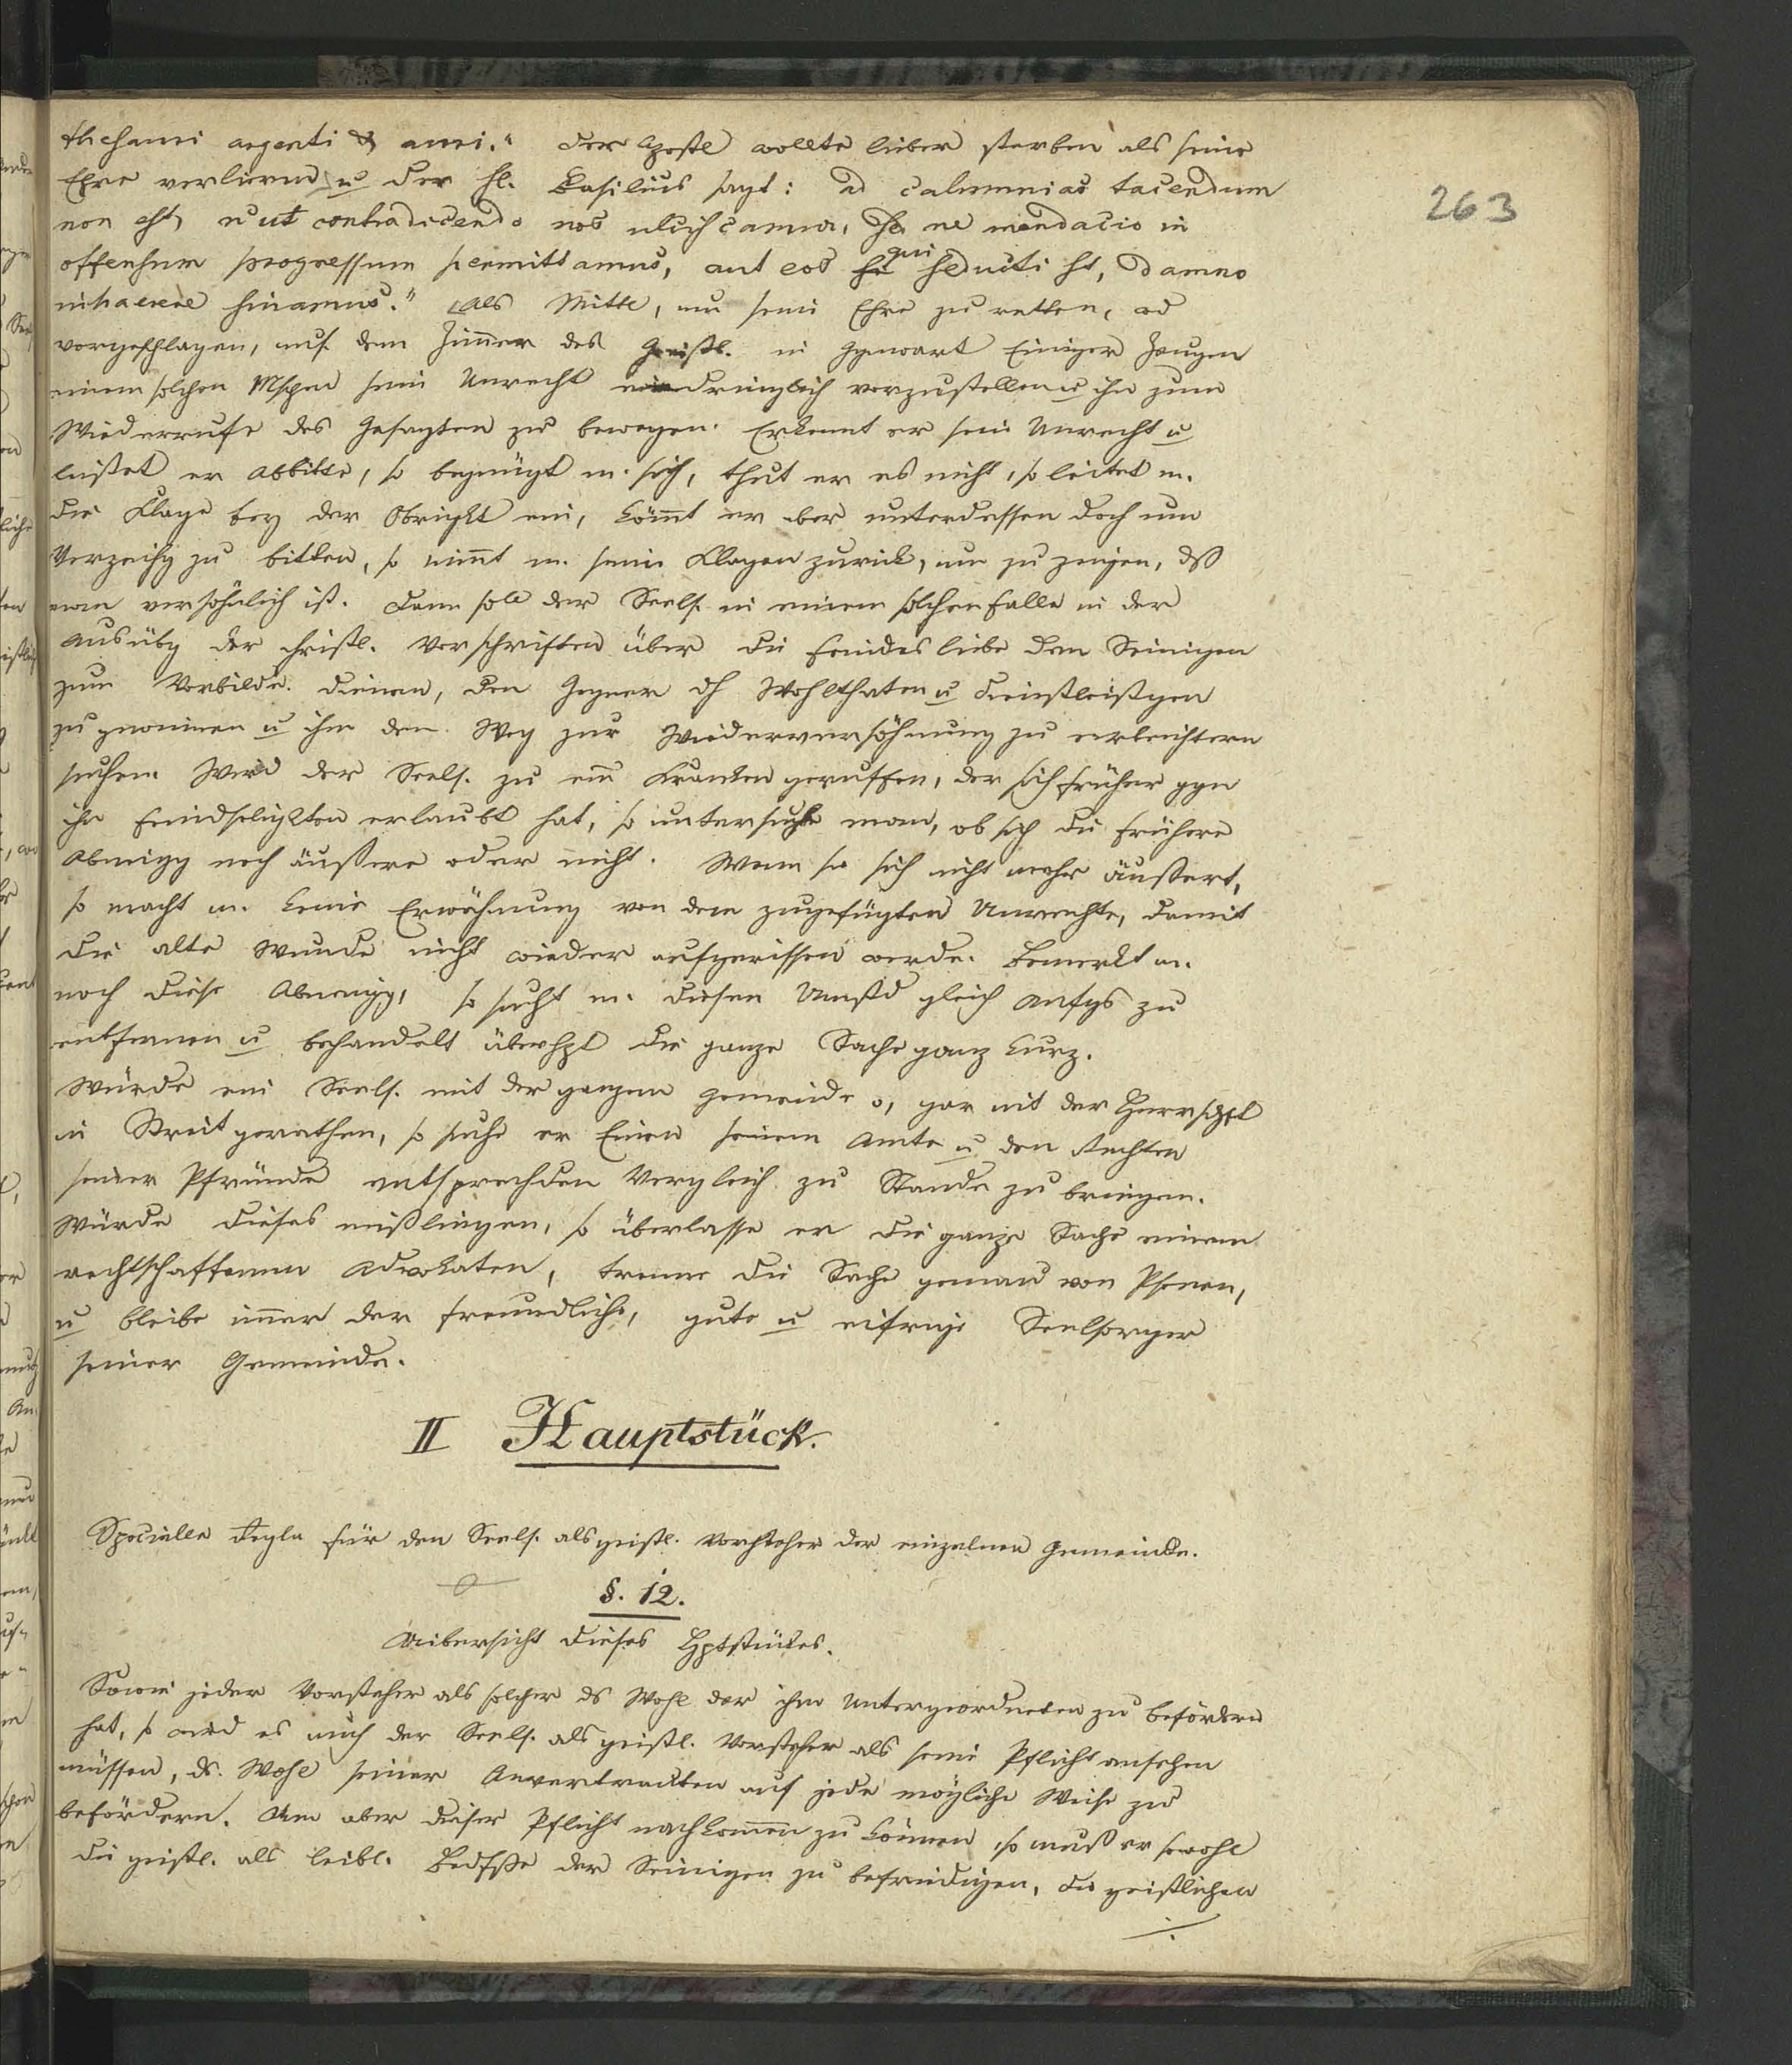 263
thesauri argenti & auri." Der Apostel wollte lieber sterben als seine
Ehre verlieren u der hl. Basilius sagt: ad calumnias tacendum
non est, n ut contradicendo nos ulciscamur, sed ne mendacio in
offensum progressum permittamus, aut eos qui seducti st, damno
inhaerere sinamus." Als Mittel, um seine Ehre zu retten, wd
vorgeschlagen, auf dem Zimmer des Geistl. in Ggenwart Einiger Zeugen
einem solchen Mschen sein Unrecht eindringlich vorzustellen u ihn zum
Wiederrufe des Gesagten zu bewegen. Erkennt er sein Unrecht u
leistet er Abbitte, so begnügt m. sich, thut er es nicht, so leitet m.
die Klage bey der Obrigkt ein, kömmt er aber unterdessen doch um
Verzeihg zu bitten, so nimt m. seine Klagen zurück, um zu zeigen, dß
man versöhnlich ist. Dann soll der Seels. in einem solchen Falle in der
Ausübg der christl. Vorschriften über die Feindesliebe den Seinigen
zum Vorbilde dienen, den Gegner dh Wohlthaten u Dienstleistgen
zu gewinnen u ihm den Weg zur Wiederversöhnung zu erleichtern
suchen. Wird der Seels. zu ein Kranken gerufen, der sich früher ggn
ihn Feindseligkten erlaubt hat, so untersuche man, ob sich die frühere
Abneigg noch äußere oder nicht. Wenn sie sich nicht mehr äußert,
so macht m. keine Erwähnung von dem zugefügten Unrechte, damit
die alte Wunde nicht wieder aufgerissen werde. Bemerkt m.
noch diese Abneigg, so sucht m. diesen Umstd gleich Anfgs zu
entfernen u behandelt überhpt die ganze Sache ganz kurz.
Würde ein Seels. mit der ganzen Gemeinde o, gar mit der Herrschft
in Streit gerathen, so suche er Einen seinem Amte u den Rechten
seiner Pfründe entsprechden Vergleich zu Stande zu bringen.
Würde dieses mißlingen, so überlasse er die ganze Sache einem
rechtschaffenen Advokaten, trenne die Sache genau von Psonen,
u bleibe immer der freundliche, gute u eifrige Seelsorger
seiner Gemeinde.
II Hauptstück.
Specielle Regln für den Seels. als geistl. Vorsteher der einzelnen Gemeinde.
§. 12.
Uibersicht dieses Hptstückes.
Sowie jeder Vorsteher als solcher ds Wohl der ihm Untergeordneten zu befördern
hat, so wird es auch der Seels. als geistl. Vorsteher als seine Pflicht ansehen
müssen, ds. Wohl seiner Anvertrauten auf jede mögliche Weise zu
befördern. Um aber dieser Pflicht nachkommen zu können, so muß er sowohl
die geistl. als leibl. Bedfße der Seinigen zu befriedigen, die geistlichen